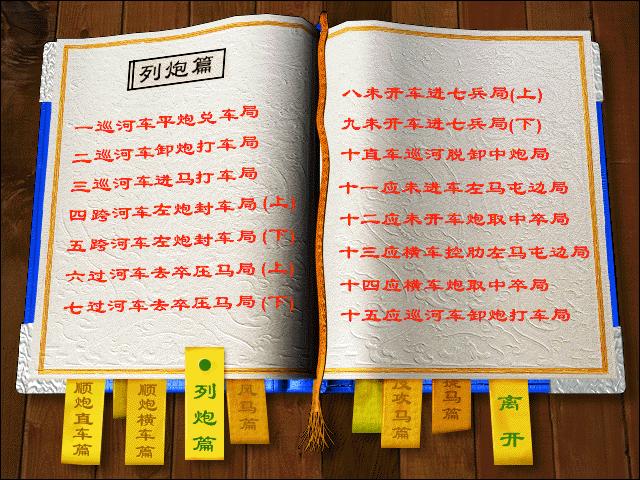 列炮篇
一巡河车平炮兑车局
二巡河车卸炮打车局
三巡河车进马打车局
四跨河车左炮封车局(上)
五跨河车左炮封车局(下)
六过河车去卒压马局(上)
七过河车去卒压马局(下)
八未开车进七兵局(上)
九未开车进七兵局(下)
十直车巡河脱卸中炮局
十一应未进车左马屯边局
十二应未开车炮取中卒局
十三应横车控肋左马屯边局
十四应横车炮取中卒局
十五应巡河车卸炮打车局
顺炮直车篇
顺炮横车篇
列炮篇
马篇
攻马篇
马篇
离开